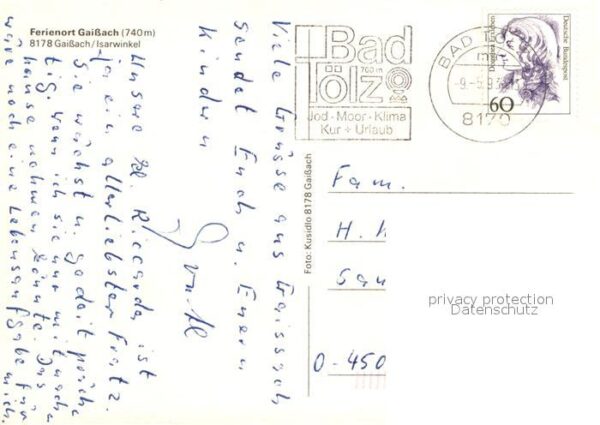 Ferienort Gaißach (740 m)
8178 Gaißach/Isarwinkel
Viele Grüsse aus Gaissach
sendet Euch u. Euern
Kindern
Unsere kl. Riccarda ist
ja ein allerliebster Fratz.
Sie wächst u. gedeiht präch-
tig, wenn ich sie nur mit nach
hause nehmen könnte. Das
wäre noch eine Lebensaufgabe für
mich.
Foto: Kusidlo 8178 Gaißach
Bad
Tölz
700 m
Jod · Moor · Klima
Kur + Urlaub
BAD
8170
Deutsche Bundespost
60
Fam.
H.
O-450
privacy protection
Datenschutz